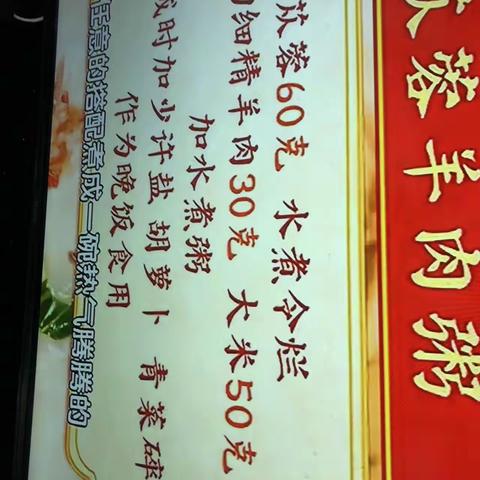 苁蓉羊肉粥
苁蓉60克 水煮令烂
细精羊肉30克 大米50克
加水煮粥
成时加少许盐 胡萝卜 青菜碎
作为晚饭食用
意的搭配煮成一碗热气腾腾的